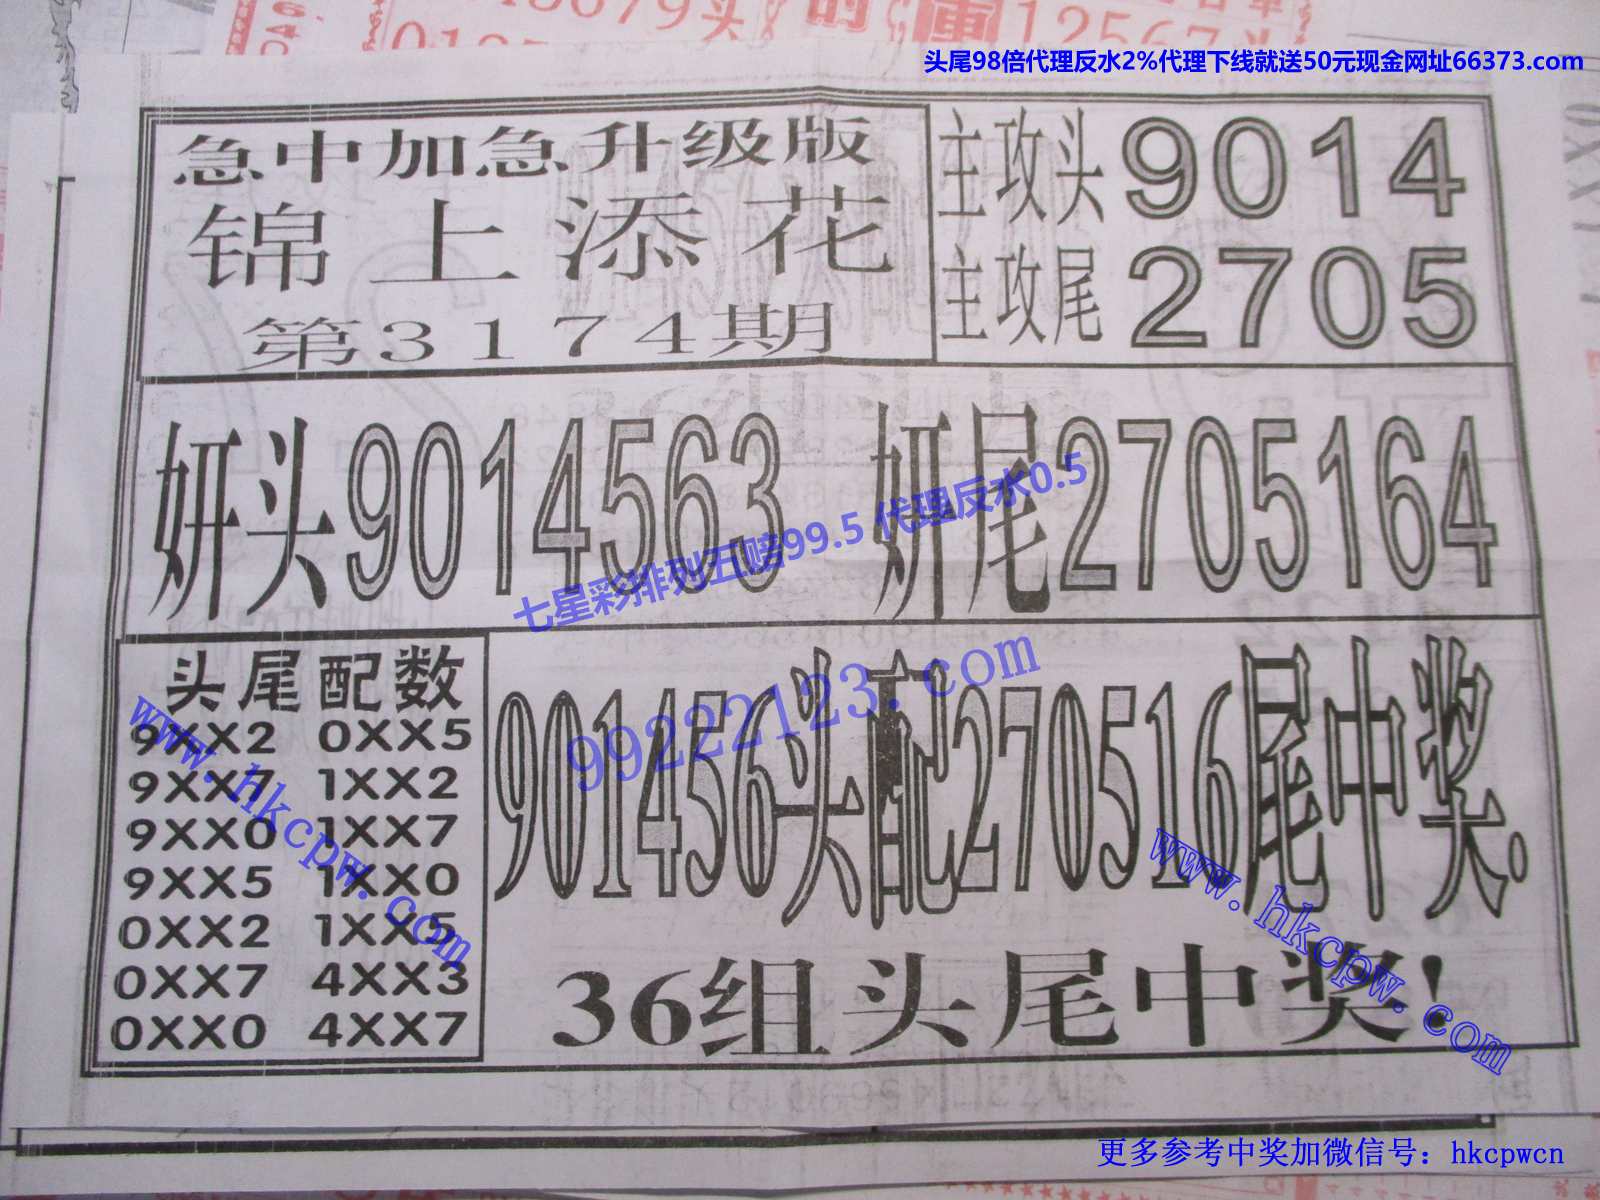 头 的 軍12567头
头尾98倍代理反水2%代理下线就送50元现金网址66373.com
急中加急升级版
锦上添花
第3174期
主攻头9014
主攻尾2705
妍头9014563
妍尾2705164
七星彩排列五赔99.5 代理反水0.5
头尾配数
9XX2 0XX5
9XX7 1XX2
9XX0 1XX7
9XX5 1XX0
0XX2 1XX5
0XX7 4XX3
0XX0 4XX7
www.hkcpw.com
99222123.com
901456头配270516尾中奖.
www.hkcpw.com
36组头尾中奖!
更多参考中奖加微信号：hkcpwcn